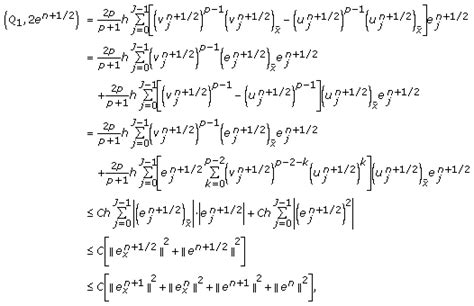 (Q₁, 2e^{n+1/2}) = \frac{2p}{p+1} h \sum_{j=0}^{J-1} [(v_j^{n+1/2})^{p-1} (v_j^{n+1/2})_{\bar{x}} − (u_j^{n+1/2})^{p-1} (u_j^{n+1/2})_{\bar{x}}] e_j^{n+1/2}
= \frac{2p}{p+1} h \sum_{j=0}^{J-1} (v_j^{n+1/2})^{p-1} (e_j^{n+1/2})_{\bar{x}} e_j^{n+1/2}
+ \frac{2p}{p+1} h \sum_{j=0}^{J-1} [(v_j^{n+1/2})^{p-1} − (u_j^{n+1/2})^{p-1}] (u_j^{n+1/2})_{\bar{x}} e_j^{n+1/2}
= \frac{2p}{p+1} h \sum_{j=0}^{J-1} (v_j^{n+1/2})^{p-1} (e_j^{n+1/2})_{\bar{x}} e_j^{n+1/2}
+ \frac{2p}{p+1} h \sum_{j=0}^{J-1} [e_j^{n+1/2} \sum_{k=0}^{p-2} (v_j^{n+1/2})^{p-2-k} (u_j^{n+1/2})^k] (u_j^{n+1/2})_{\bar{x}} e_j^{n+1/2}
≤ Ch \sum_{j=0}^{J-1} |(e_j^{n+1/2})_{\bar{x}}| · |e_j^{n+1/2}| + Ch \sum_{j=0}^{J-1} |(e_j^{n+1/2})^2|
≤ C[‖e_x^{n+1/2}‖^2 + ‖e^{n+1/2}‖^2]
≤ C[‖e_x^{n+1}‖^2 + ‖e_x^n‖^2 + ‖e^{n+1}‖^2 + ‖e^n‖^2],